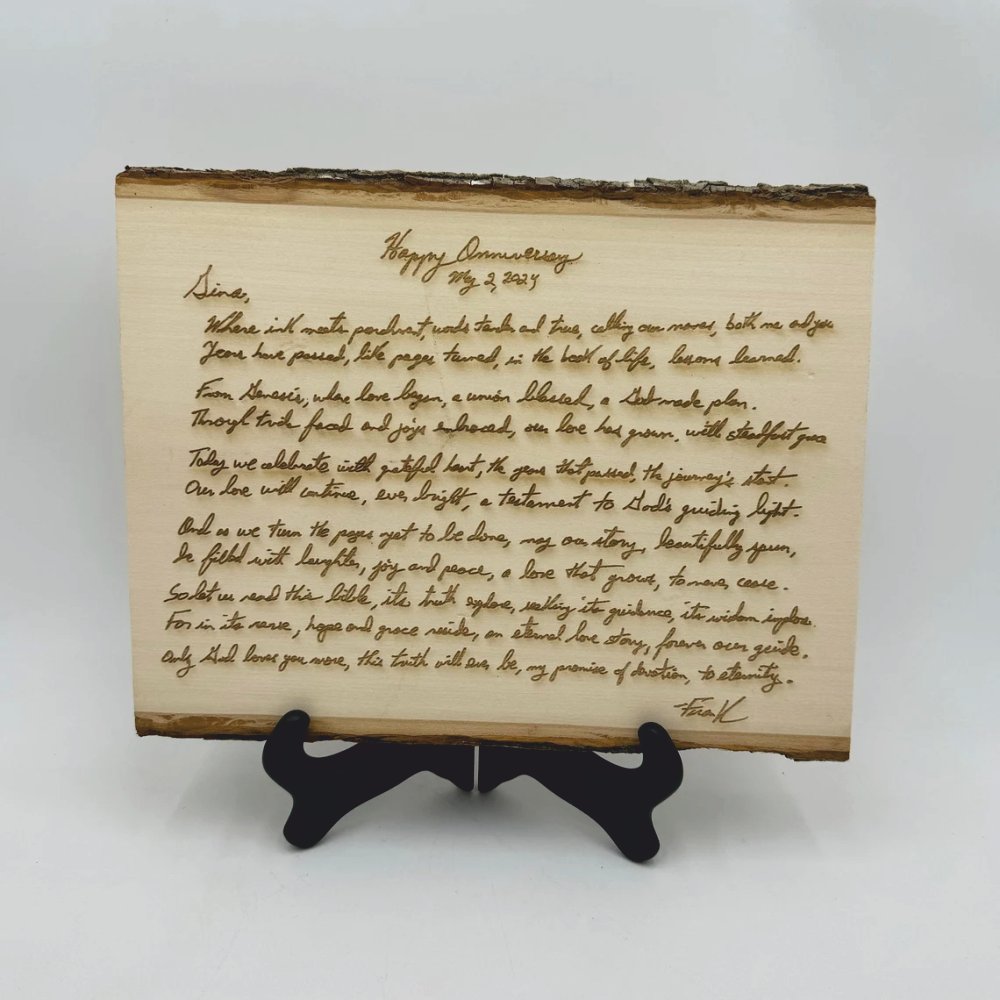 Happy Anniversary
May 2, 2024
Gina,
Where ink meets parchment, words tender and true, calling our names, both me and you
Years have passed, like pages turned, in the book of life, lessons learned.
From Genesis, where love began, a union blessed, a God-made plan.
Through trials faced and joys embraced, our love has grown, with steadfast grace
Today we celebrate with grateful heart, the years that passed, the journey's start.
Our love will continue, ever bright, a testament to God's guiding light.
And as we turn the pages yet to be done, may our story, beautifully spun,
be filled with laughter, joy and peace, a love that grows, to never cease.
So let us read this bible, its truth explore, seeking its guidance, its wisdom implore.
For in its verse, hope and grace reside, an eternal love story, forever our guide.
Only God loves you more, this truth will ever be, my promise of devotion, to eternity.
Frank